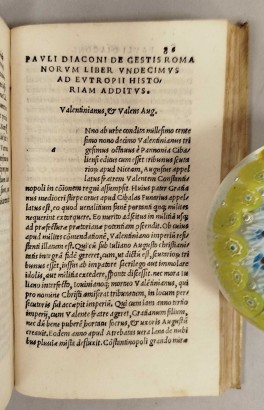 86
PAVLI DIACONI DE GESTIS ROMA
NORVM LIBER VNDECIMVS
AD EVTROPII HISTO/
RIAM ADDITVS.
Valentinianus, & Valens Aug.
a
Nno ab urbe condita millesimo cente
simo nono decimo Valentinianus tri
gesimus octauus è Pannonia Cibal
liensi editus cum esset tribunus scuta
riorum apud Niceam, Augustus appel
latus fratrem Valentem Constantino
nopoli in regni assumpsit. Huius pater Gratia
nus mediocri stirpe ortus apud Cibalas Funarius appel
latus est, eo quod uenalitium funem portanti quinq; milites
nequirent extorquere. Eo merito ascitus in militiã usq;
ad præfecturæ prætorianæ potentiam ascendit. Ob cuius
apud milites commendationẽ, Valentiniano imperiũ resi
stenti illatum est. Qui cũ sub Iuliano Augusto christianita
tis integrã fidẽ gereret, cum, ut dictũ est, scutariorũ tri
bunus esset, iussus ab imperatore sacrilego aut immolare
idolis, aut militia excedere, sponte discessit. nec mora Iu
liano interfecto, Iouinianoq; mortuo Valentinianus, qui
pro nomine Christi amiserat tribunatum, in locum perse
cutoris sui accepit imperiũ. Qui cum iam anno tertio
imperij, cum Valente fratre ageret, Gratianum filium,
nec dũ bene puberẽ hortatu socrus, & uxoris Augustũ
creauit. Eodem anno apud Atrebatas uera lana de nubi
bus pluuiæ mista defluxit. Constantinopoli grando miræ